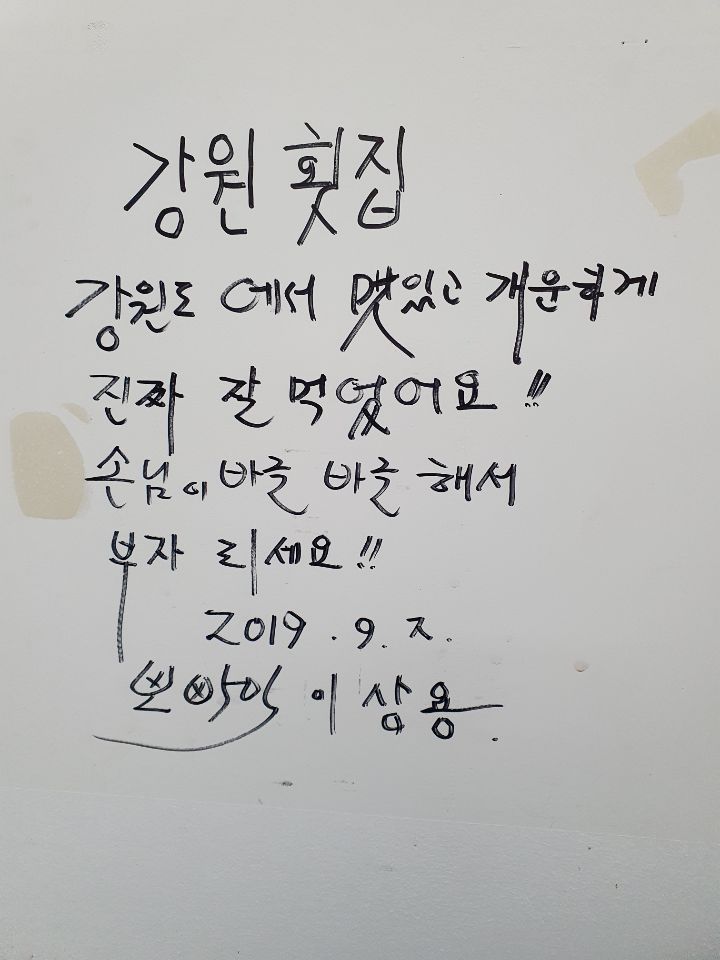 강원 횟집
강원도 에서 맛있고 개운하게
진짜 잘 먹었어요!!
손님이 바글 바글 해서
부자 되세요!!
2019. 9. 7.
뽀빠이 이상용